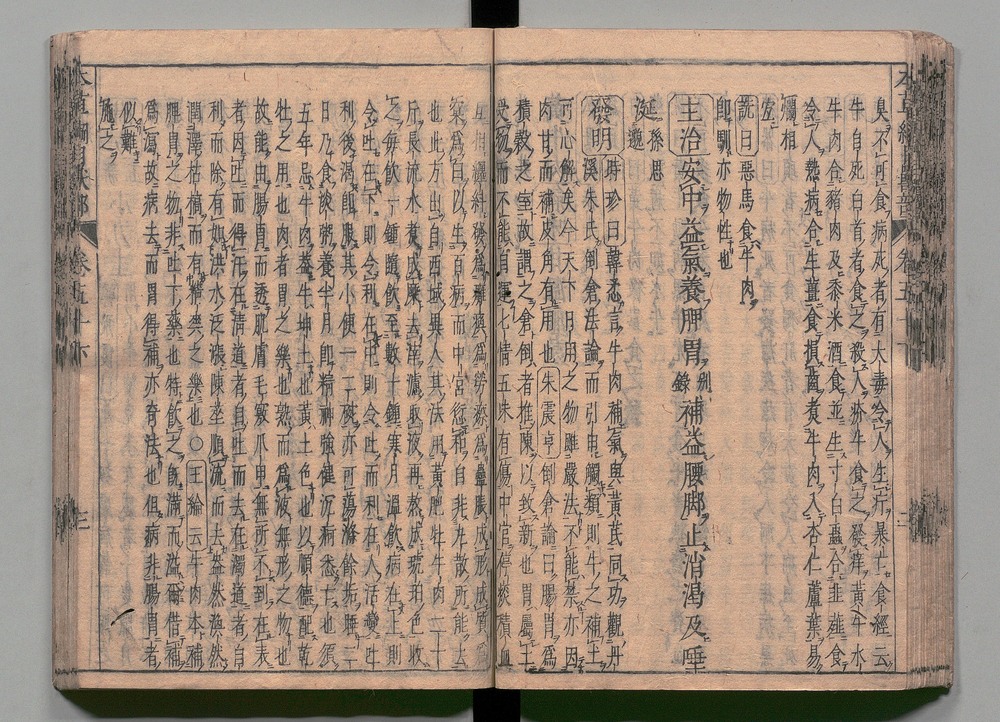 臭不可食病死者有大毒令人生疔暴亡食經云
牛自死白首者食之殺人疥牛食之發痒黃牛水
牛肉合豬肉及黍米酒食並生寸白蟲合韭薤食
令人熱病合生薑食損齒煮牛肉入杏仁蘆葉易
爛相
宜
詵曰惡馬食牛肉
卽馴亦物性也
主治安中益氣養脾胃別錄補益腰脚止消渴及唾
涎孫思
邈
發明時珍曰韓𢘅言牛肉補氣與黃芪同功觀丹
溪朱氏倒倉法論而引申觸類則牛之補土
可心解矣今天下日用之物雖嚴法不能禁亦因
肉甘而補皮角有用也朱震亨倒倉論曰腸胃爲
積穀之室故謂之倉倒者推陳以致新也胃屬土
受物而不能自運七情五味有傷中宮停痰積血
互相纏糾發爲癱瘓爲勞瘵爲蠱脹成形成質爲
窠爲臼以生百病而中宮愆和自非丸散所能去
也此方出自西域異人其法用黃肥牡牛肉二十
斤長流水煮成糜去滓濾取液再熬成琥珀色收
之每飲一鍾隨飲至數十鍾寒月溫飲病在上則
令吐在下則令利在中則令吐而利在人活變吐
利後渴卽服其小便一二碗亦可蕩滌餘垢睡二
日乃食淡粥養半月卽精神強健沉痾悉亡也須
五年忌牛肉蓋牛坤土也黃土色也以順德配乾
牡之用也肉者胃之藥也熟而爲液無形之物也
故能由腸胃而透肌膚毛竅爪甲無所不到在表
者因吐而得汗在清道者自吐而去在濁道者自
利而除有如洪水泛漲陳莝順流而去盎然渙然
潤澤枯槁而有精爽之樂也○王綸云牛肉本補
脾胃之物非吐下藥也特飲之旣滿而溢爾借補
爲瀉故病去而胃得補亦奇法也但病非腸胃者
似難
施之